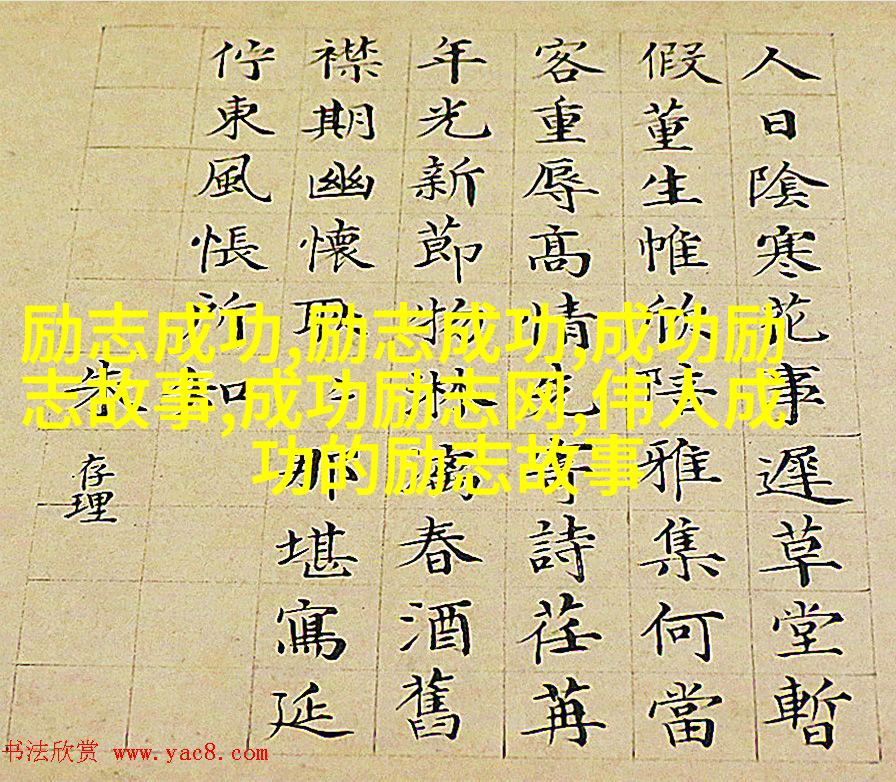 人日陰寒花事遲草堂暫
假董生帷欣陪雅集何當
客重辱高情寄詩荏苒
年光新節物淋漓春酒舊
襟期幽懷耿那堪寫延
佇東風悵所知
朱存理
励志成功,励志成功,成功励
志故事,成功励志网,伟人成
功的励志故事
书法欣赏 www.yac8.com